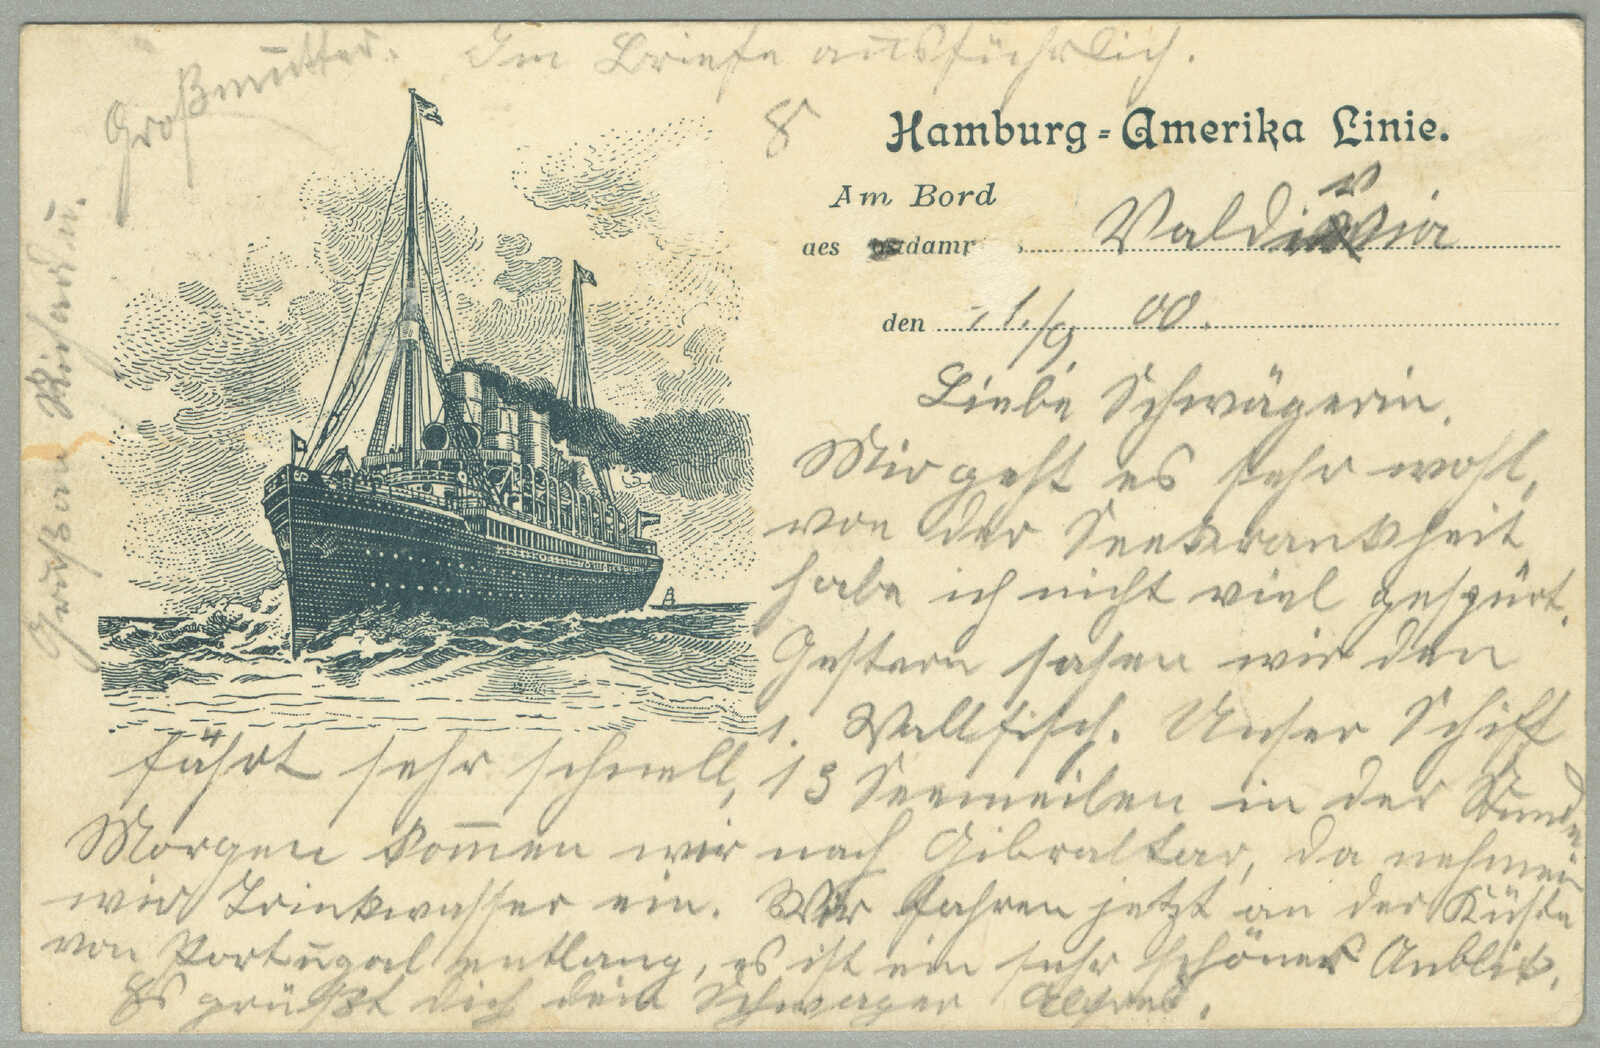 Großmutter. Im Briefe ausführlich.
Hamburg-Amerika Linie.
Am Bord
des Postdampfers Valdivia
den 1./9. 00.
Liebe Schwägerin.
Mir geht es sehr wohl,
von der Seekrankheit
habe ich nicht viel gespürt.
Gestern sahen wir den
1. Wallfisch. Unser Schiff
fährt sehr schnell, 13 Seemeilen in der Stunde
Morgen kommen wir nach Gibraltar, da nehmen
wir Trinkwasser ein. Wir fahren jetzt an der Küste
von Portugal entlang, es ist ein sehr schöner Anblick.
Es grüßt dich dein Schwager Alfred.
Grüßen Richard u.